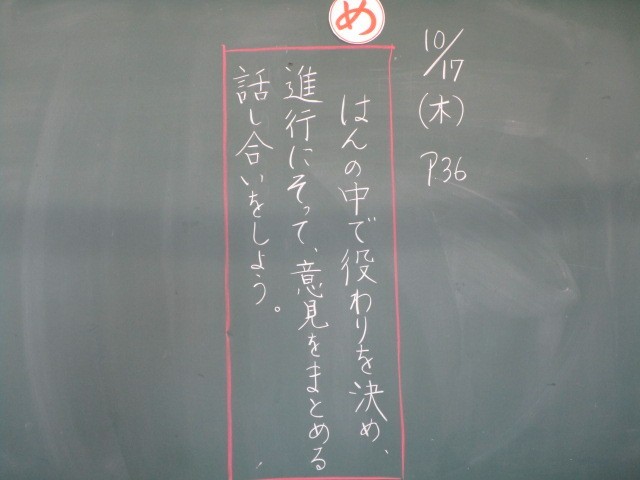 10/17
(木)
P.36
め
はんの中で役わりを決め、
進行にそって、意見をまとめる
話し合いをしよう。